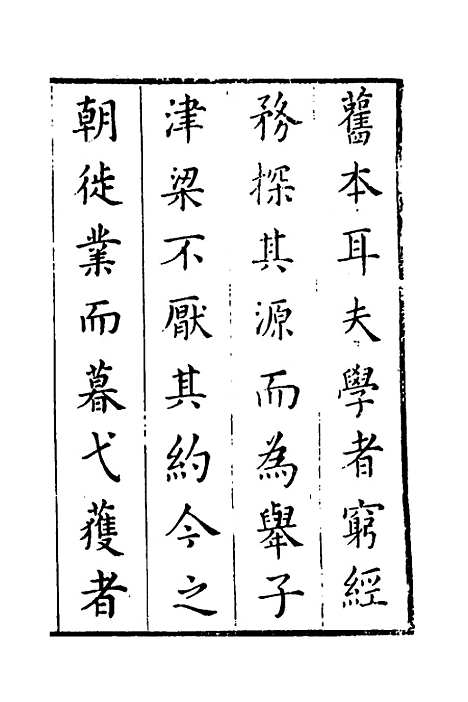 舊本耳夫學者窮經
務探其源而為舉子
津梁不厭其約今之
朝徙業而暮弋獲者